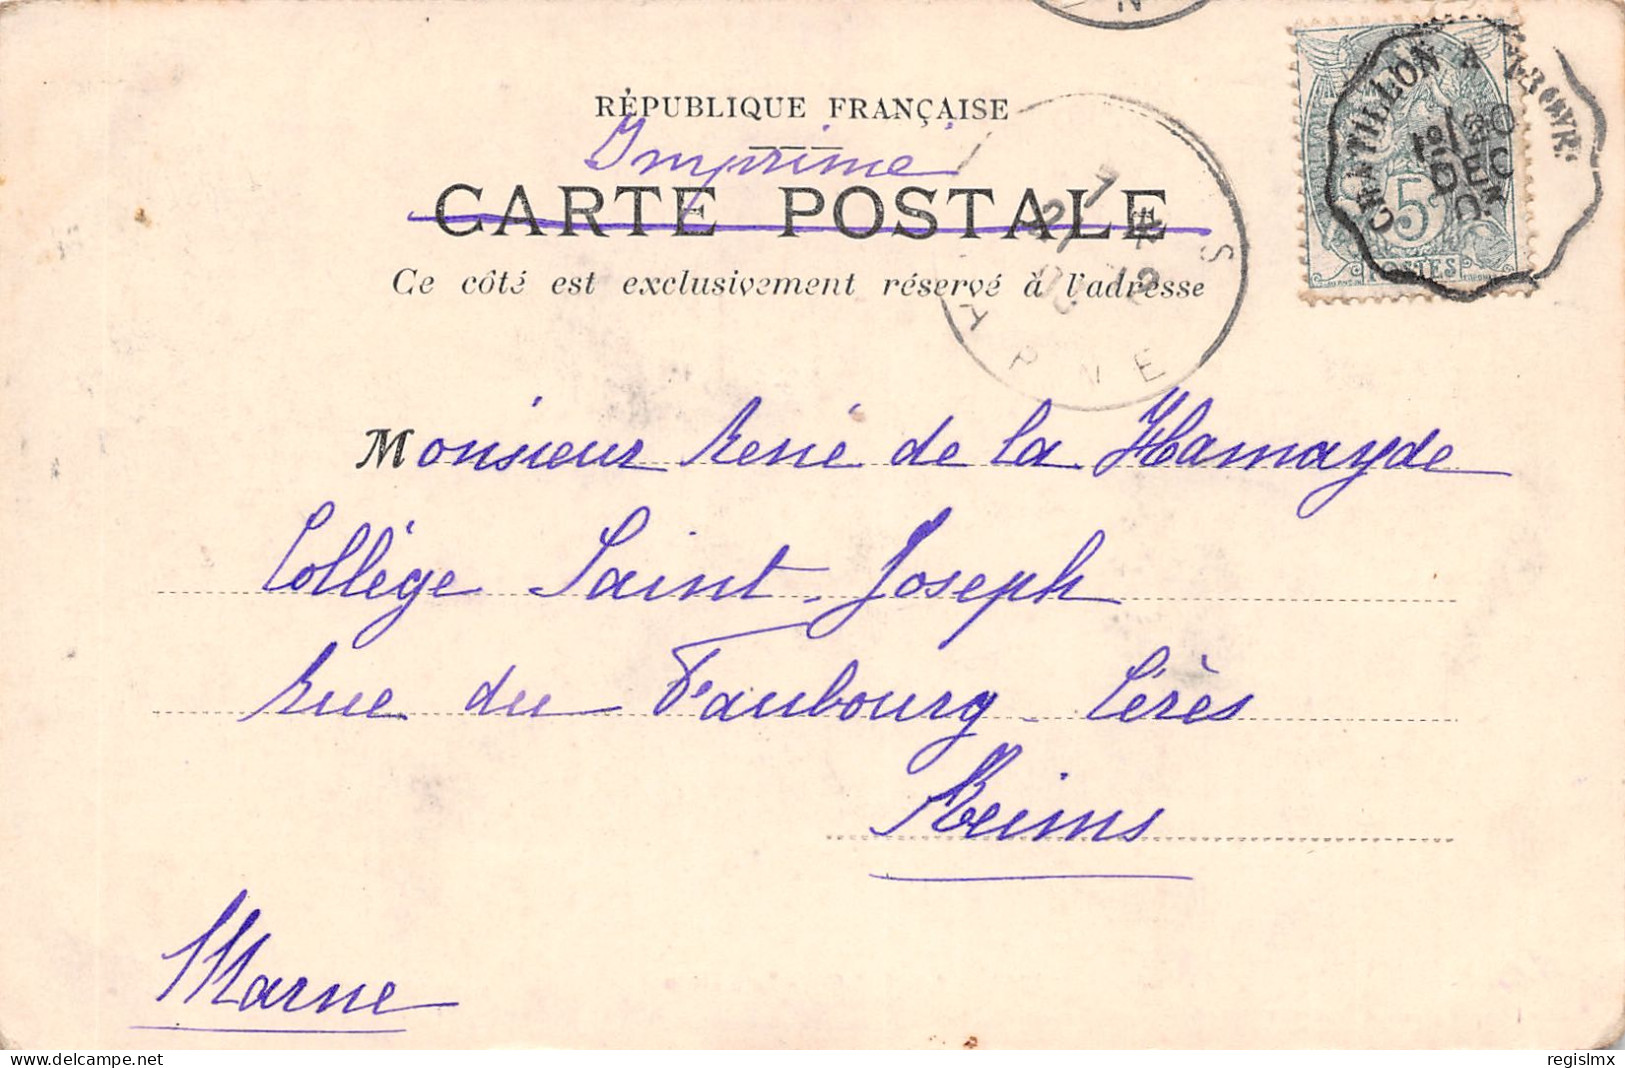 RÉPUBLIQUE FRANÇAISE
Imprimé
CARTE POSTALE
Ce côté est exclusivement réservé à l'adresse
CHATILLON A
5
POSTES
Monsieur René de la Hamayde
Collège Saint-Joseph
Rue du Faubourg Cérès
Reims
Marne
delcampe.net
regislmx